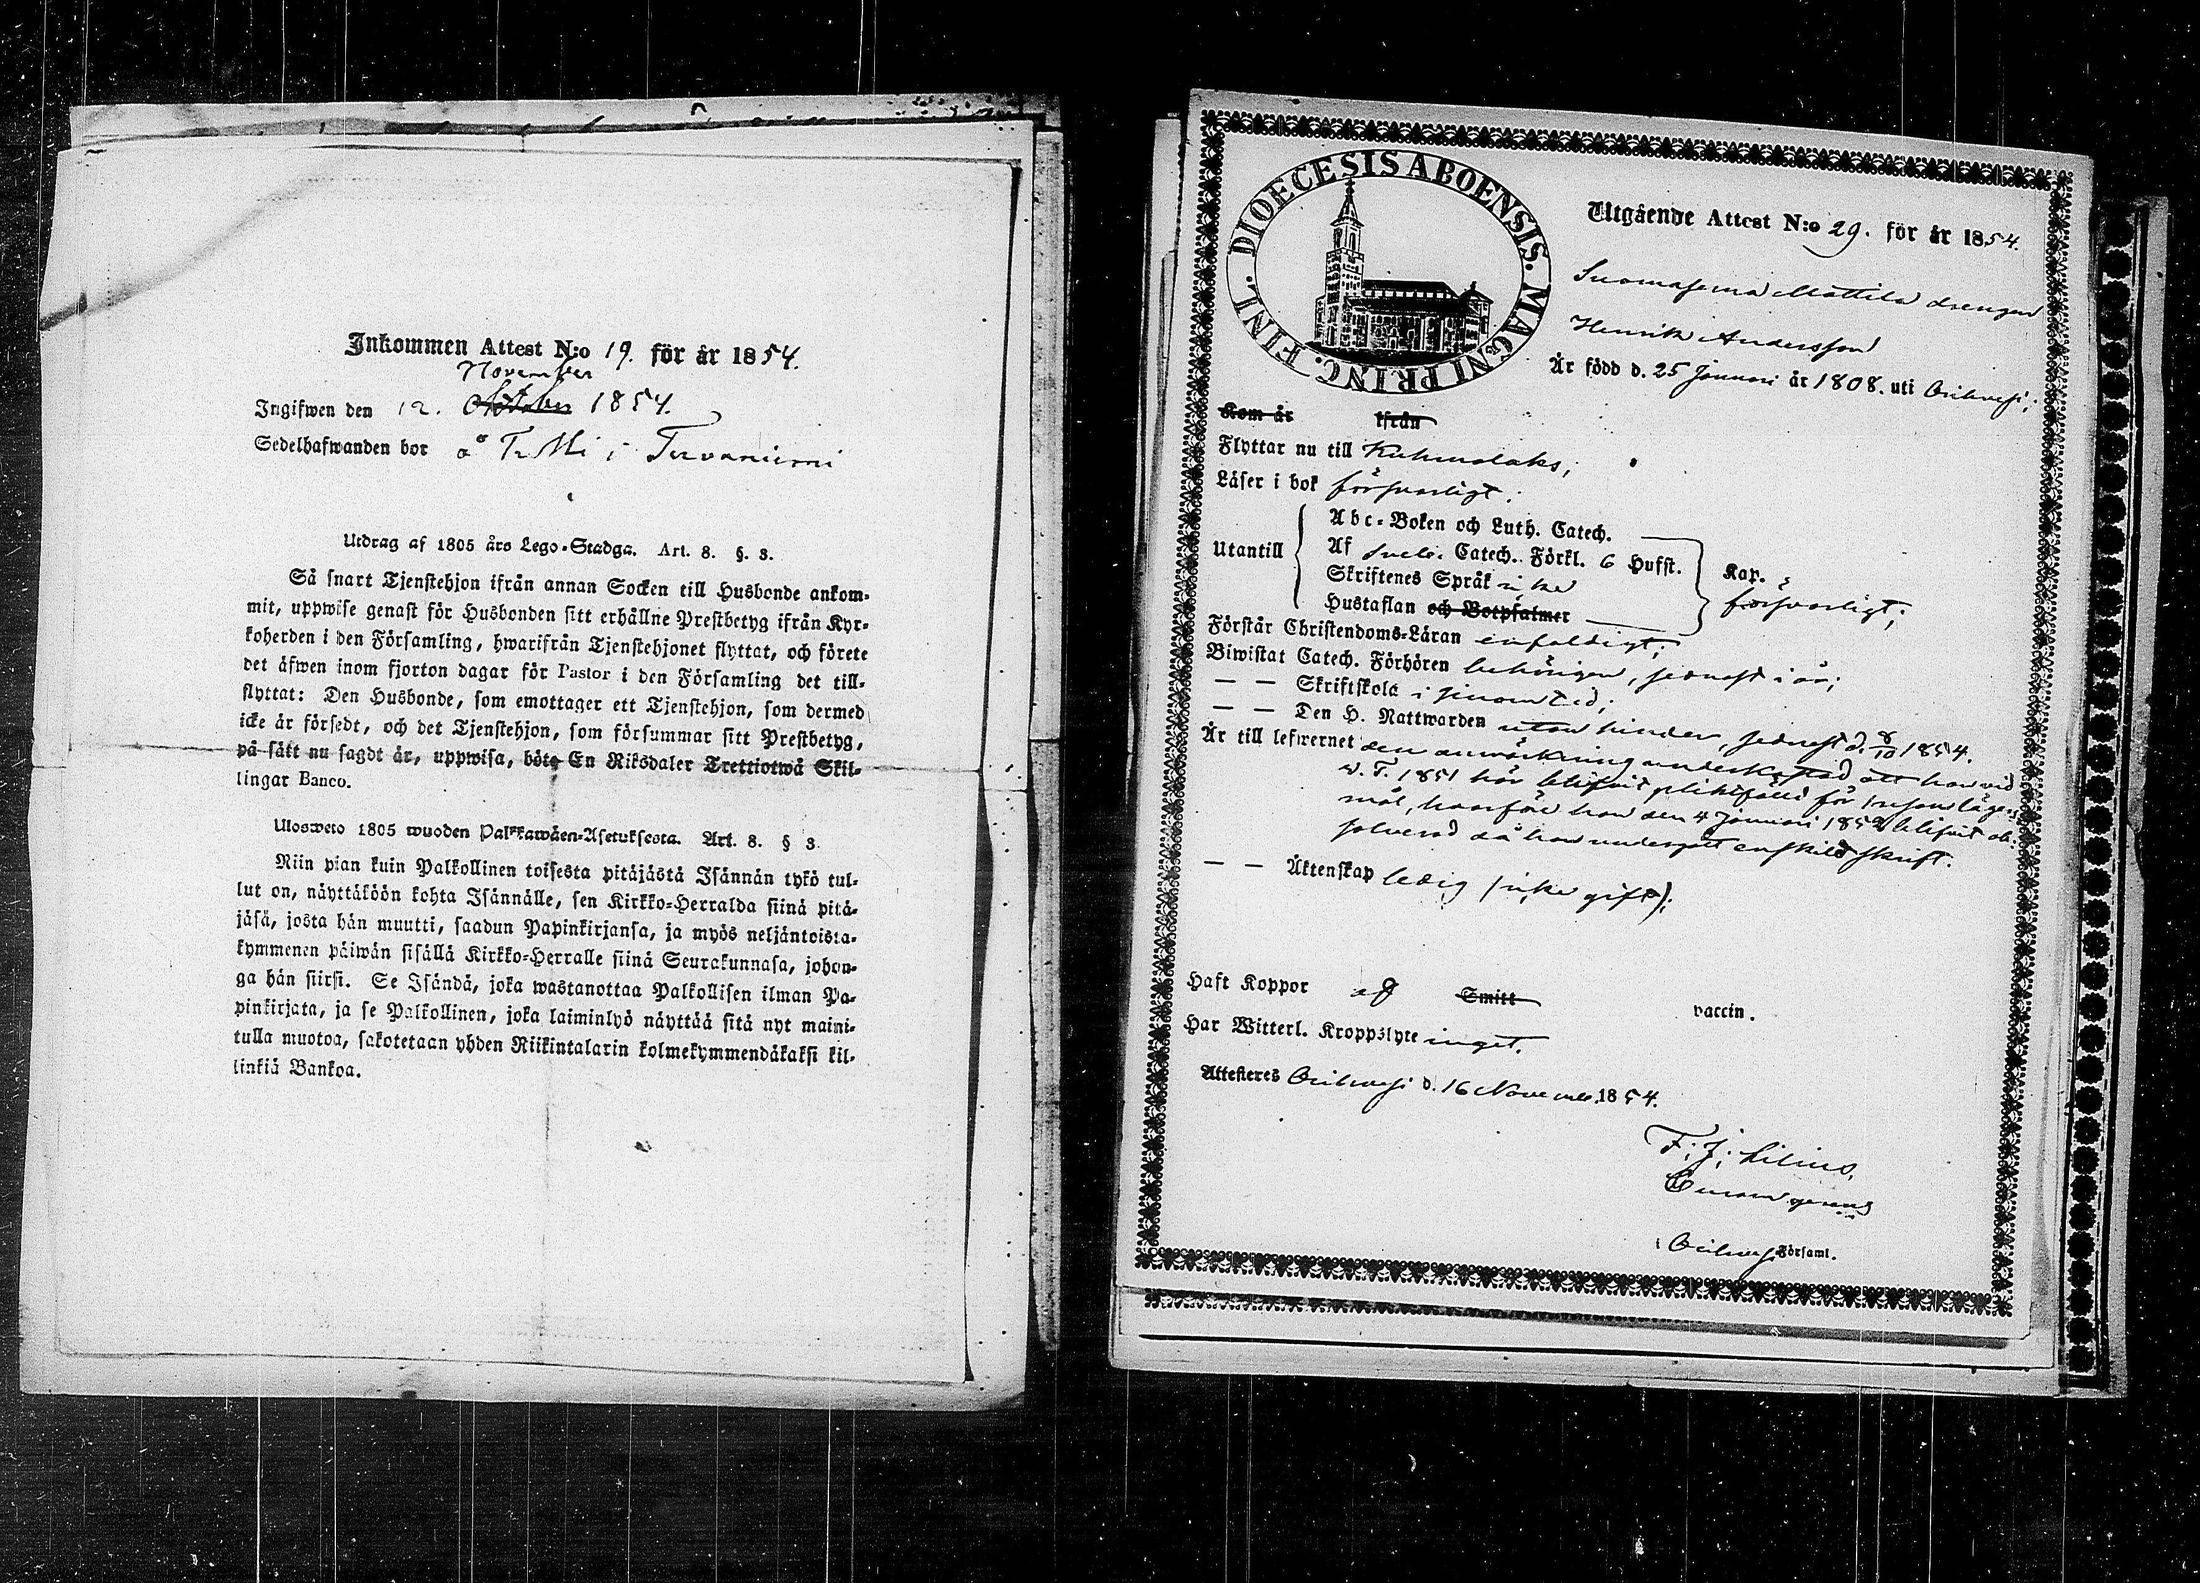 Inkommen Attest N:o 19. för år 1854.
November
Ingifwen den 12. Oktober 1854.
Sedelhafwanden bor å i Tervaniemi
Utdrag af 1805 års Lego-Stadga. Art. 8. §. 3.
Så snart Tjenstehjon ifrån annan Socken till Husbonde ankom-
mit, uppwise genast för Husbonden sitt erhållne Prestbetyg ifrån Kyr-
koherden i den Församling, hwarifrån Tjenstehjonet flyttat, och förete
det äfwen inom fjorton dagar för Pastor i den Församling det till-
flyttat: Den Husbonde, som emottager ett Tjenstehjon, som dermed
icke är försedt, och det Tjenstehjon, som försummar sitt Prestbetyg,
på sätt nu sagdt är, uppwisa, böte En Riksdaler Trettiotwå Skil-
lingar Banco.
Ulosweto 1805 wuoden Palkkawäen-Asetuksesta. Art. 8. § 3.
Niin pian kuin Palkollinen toisesta pitäjästä Isännän tykö tul-
lut on, näyttäköön kohta Isännälle, sen Kirkko-Herralda siinä pitä-
jäsä, josta hän muutti, saadun Papinkirjansa, ja myös neljäntoista-
kymmenen päiwän sisällä Kirkko-Herralle siinä Seurakunnasa, johon-
ga hän siirsi. Se Isändä, joka wastanottaa Palkollisen ilman Pa-
pinkirjata, ja se Palkollinen, joka laiminlyö näyttää sitä nyt maini-
tulla muotoa, sakotetaan yhden Riikintalarin kolmekymmendäkaksi kil-
linkiä Bankoa.
DIOECESIS ABOENSIS. MAGNI PRINC. FINL.
Utgående Attest N:o 29. för år 1854.
Suomasema Mattila drengen
Henrik Andersson
Är född d. 25 Januari år 1808. uti Orihvesi;
Kom år ifrån
Flyttar nu till Kuhmalaks;
Läser i bok försvarligt;
Utantill
Abc-Boken och Luth. Catech.
Af Sveb. Catech. Förkl. 6 Hufst.
Skriftenes Språk icke
Hustaflan och Botpsalmer
Kap.
försvarligt;
Förstår Christendoms-Läran enfaldigt;
Biwistat Catech. Förhören behörigen, sednast i år;
— — Skriftskola i sinom tid;
— — Den H. Nattwarden utan hinder, sednast d. 8/10 1854.
Är till lefwernet den anmärkning underkastad att han vid
v. T. 1851 här blifvit pliktfälld för lägers
mål, hvarföre han den 4 Januari 1852 blifvit ab-
solverad då han undergått enskild skrift.
— — Äktenskap ledig (icke gift);
Haft Koppor af Smitt vaccin.
Har Witterl. Kroppslyte inget.
Attesteres Orihvesi d. 16 November 1854.
F; J; Lilius,
Curam gerens
i Orihvesi Församl.